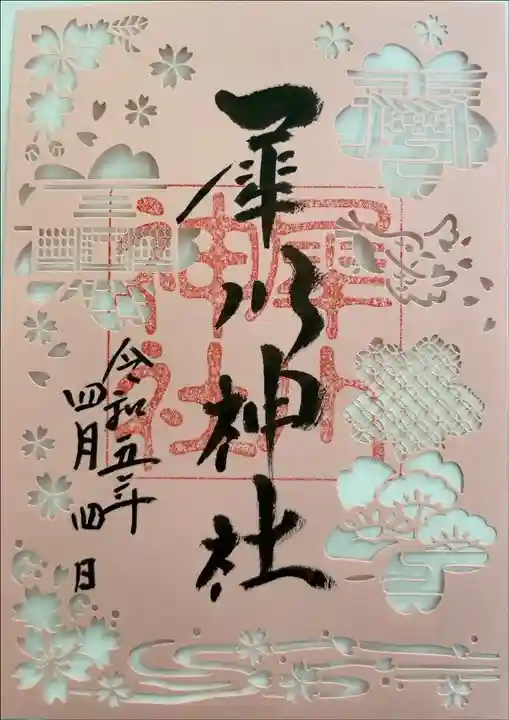 犀川神社
令和五年
四月四日